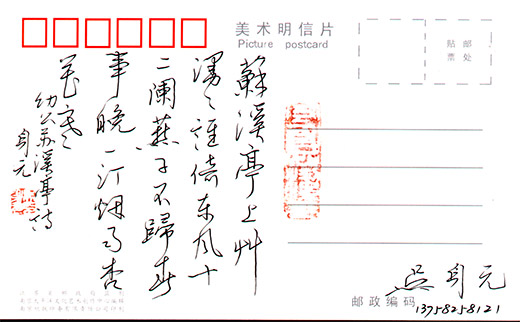 美术明信片
Picture postcard
贴邮
票处
蘇溪亭上艸
漫々誰倚东风十
二阑燕子不歸春
事晚一汀烟雨杏
花寒
幼公苏溪亭诗
元
吴 元
邮政编码
13758258121